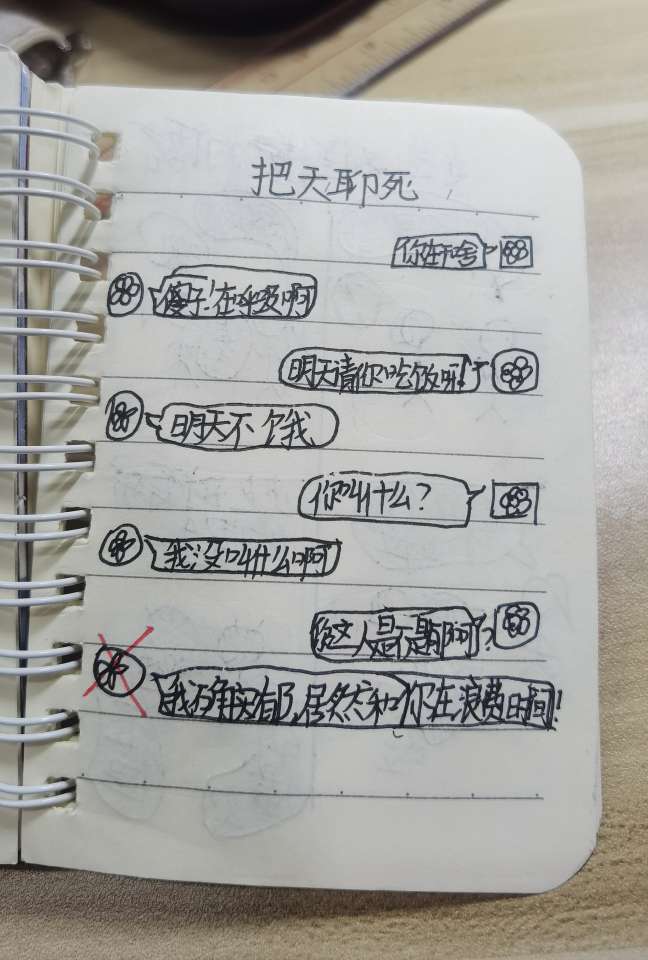 把天聊死
你在干啥
傻子!在呼吸啊
明天请你吃饭呀!
明天不饿
你叫什么?
我没叫什么啊
你这人是不是有 啊?
我 确实有 ,居然和你在浪费时间!